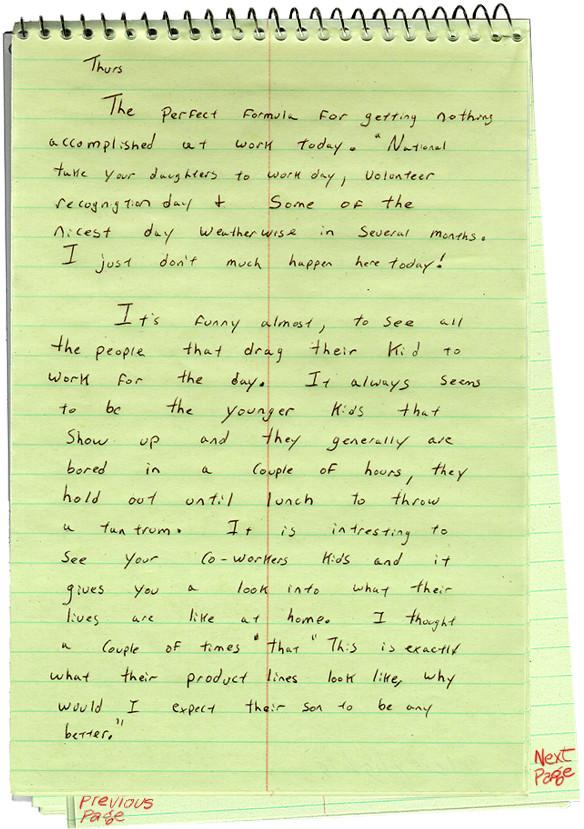 Thurs
The perfect formula for getting nothing
accomplished at work today. "National
take your daughters to work day, volunteer
recognigtion day + Some of the
nicest day weatherwise in several months.
I just don't much happen here today!
It's funny almost, to see all
the people that drag their kid to
work for the day. It always seems
to be the younger kids that
show up and they generally are
bored in a couple of hours, they
hold out until lunch to throw
a tantrum. It is intresting to
see your co-workers kids and it
gives you a look into what their
lives are like at home. I thought
a couple of times "that" This is exactly
what their product lines look like, why
would I expect their son to be any
better."
Next
Page
Previous
Page